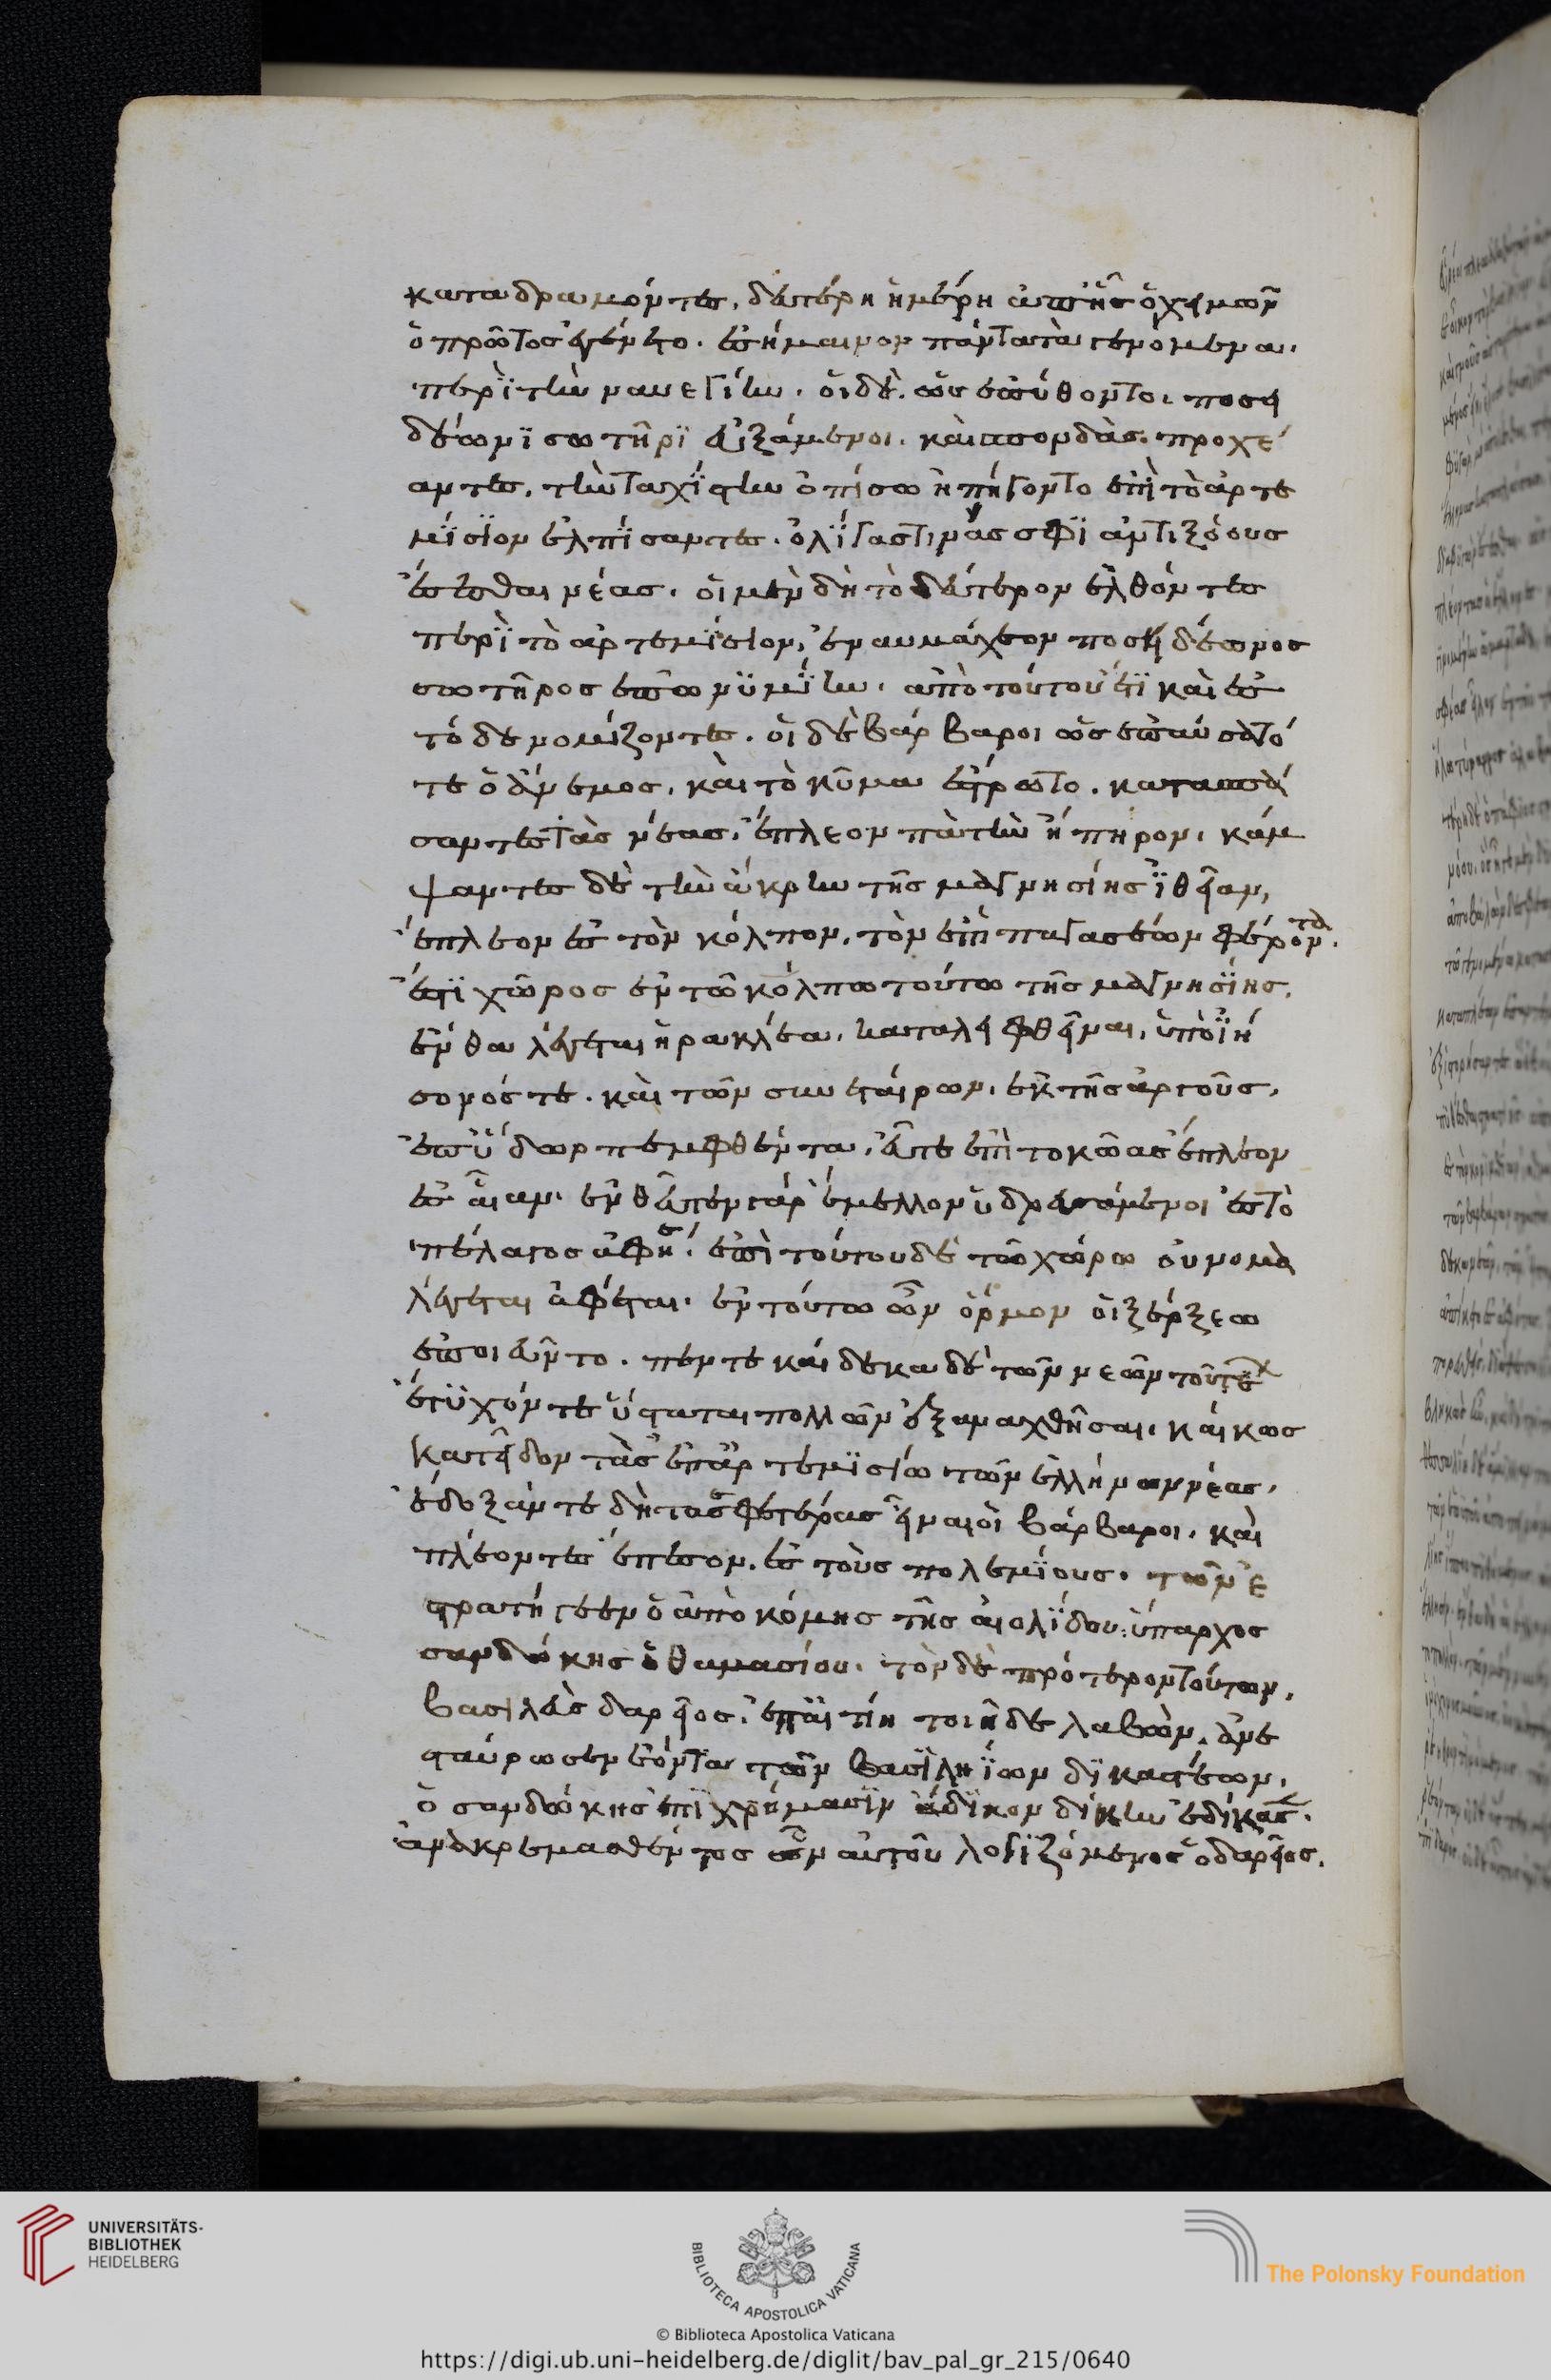 καταδραμόντες, δευτέρη ἡμέρη ἀπ' ἧς ὁ χειμὼν
ὁ πρῶτος ἐγένετο. ἐσήμαινον πάντα τὰ γενόμενα.
περὶ τὴν ναυεγίην. οἱ δὲ. ὡς ἐπύθοντο, ποσει
δέωνι σωτῆρι εὐξάμενοι. καὶ σπονδὰς. προχέ
αντες, τὴν ταχίστην ὀπίσω ἠπήγοντο ἐπὶ τὸ ἀρτε
μίσιον ἐλπίσαντες. ὀλίγας τινάς σφι ἀντιξόους
ἔσεσθαι νέας. οἱ μὲν δὴ τὸ δεύτερον ἐλθόντες
περὶ τὸ ἀρτεμίσιον, ἐναυμάχεον ποσειδέωνος
σωτῆρος ἐπωνυμίην. ἀπὸ τούτου ἔτι καὶ ἐς
τόδε νομίζοντες. οἱ δὲ βάρβαροι ὡς ἐπαύσατό
τε ὁ ἄνεμος, καὶ τὸ κῦμα ἔστρωτο. κατασπά
σαντες τὰς νέας, ἔπλεον πὰ τὴν ἤπηρον, κάμ
ψαντες δὲ τὴν ἄκρην τῆς μαγνησίης ἰθεῖαν,
ἔπλεον ἐς τὸν κόλπον, τὸν ἐπὶ παγασέων φέροντα.
ἔστι χῶρος ἐν τῶ κόλπω τούτω τῆς μαγνησίης,
ἔνθα λέγεται ἡρακλέα, καταλειφθῆναι, ὑπὸ ἰή
σονός τε. καὶ τῶν συνεταίρων, ἐκ τῆς ἀργοῦς,
ἐπ' ὕδωρ πεμφθέντα, εὖτε ἐπὶ τὸ κῶας ἔπλεον
ἐς αἶαν. ἐνθεῦτεν γὰρ ἔμελλον ὑδρευσάμενοι ἐς τὸ
πέλαγος ἀφήσ. ἐπὶ τούτου δὲ τῶ χώρω οὔνομα
λέγεται ἀφέται. ἐν τούτω ὦν ὅρμον οἱ ξέρξεω
ἐποιεῦντο. πεντεκαίδεκα δὲ τῶν νεῶν τουτέ
ἔτυχόν τε ὕσταται πολλὸν ἐξαναχθῆσαι. καί κως
κατεῖδον τὰς ἐπ' ἀρτεμισίω τῶν ἑλλήνων νέας,
ἔδοξάν τε δὴ τὰς σφετέρας εἶναι οἱ βάρβαροι. καὶ
πλέοντες ἔπεσον, ἐς τοὺς πολεμίους. τῶν ἐ
στρατήγεεν ὁ ἀπὸ κύμης τῆς αἰολίδος ὕπαρχος
σανδώκης ὁ θαμασίου. τὸν δὲ πρότερον τούτων,
βασιλεὺς δαρεῖος, ἐπ' αἰτίη τοιῆδε λαβὼν, ἀνε
σταύρωσεν ἐόντα τῶν βασιληίων δικαστέων,
ὁ σανδώκης ἐπὶ χρήμασιν ἄδικον δίκην ἐδίκασε.
ἀνακρεμασθέντος ὦν αὐτοῦ λογιζόμενος ὁ δαρεῖος.
UNIVERSITÄTS-
BIBLIOTHEK
HEIDELBERG
BIBLIOTECA APOSTOLICA VATICANA
© Biblioteca Apostolica Vaticana
The Polonsky Foundation
https://digi.ub.uni-heidelberg.de/diglit/bav_pal_gr_215/0640